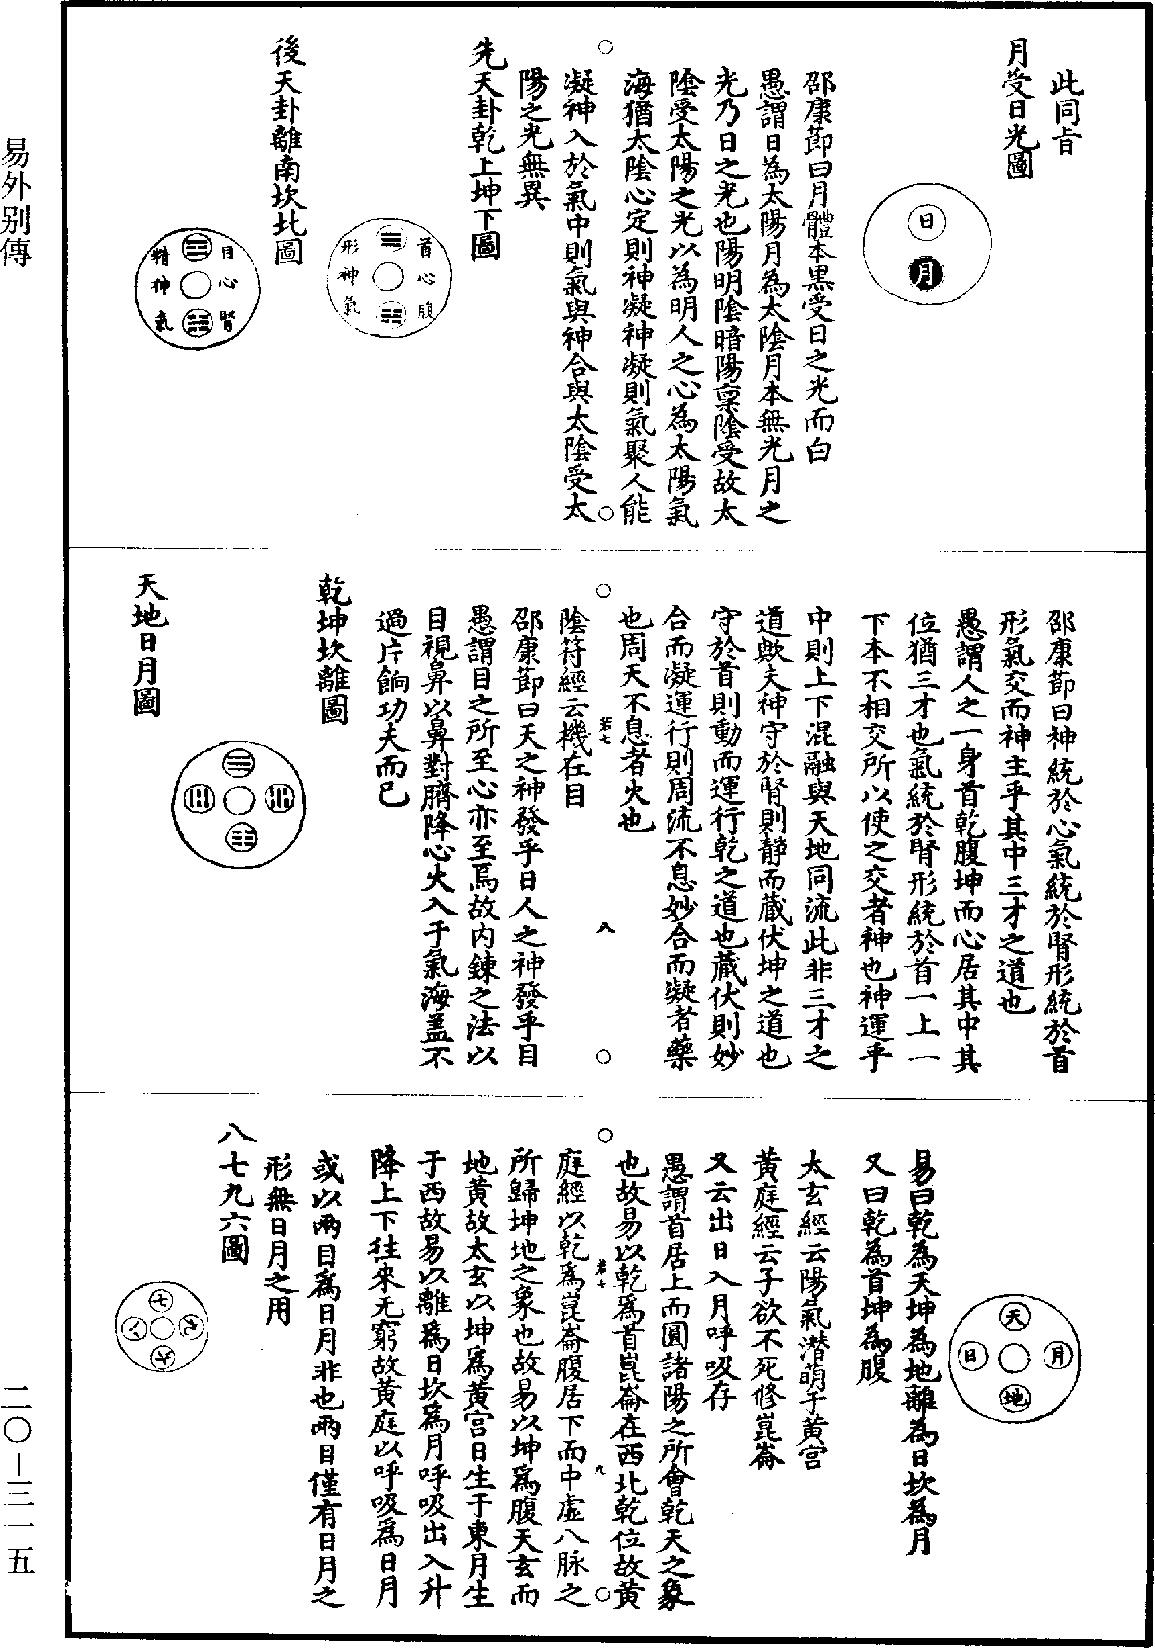 易外别傳
此同旨
月受日光圖
日
月
邵康節曰月體本黑受日之光而白
愚謂日為太陽月為太陰月本無光月之
光乃日之光也陽明陰暗陽稟陰受故太
陰受太陽之光以為明人之心為太陽氣
海猶太陰心定則神凝神凝則氣聚人能
凝神入於氣中則氣與神合與太陰受太
陽之光無異
先天卦乾上坤下圖
首心腹
☰
☷
形神氣
後天卦離南坎北圖
目心腎
☲
☵
精神氣
邵康節曰神統於心氣統於腎形統於首
形氣交而神主乎其中三才之道也
愚謂人之一身首乾腹坤而心居其中其
位猶三才也氣統於腎形統於首一上一
下本不相交所以使之交者神也神運乎
中則上下混融與天地同流此非三才之
道歟夫神守於腎則静而藏伏坤之道也
守於首則動而運行乾之道也藏伏則妙
合而凝運行則周流不息妙合而凝者藥
也周天不息者火也
若七
八
陰符經云機在目
邵康節曰天之神發乎日人之神發乎目
愚謂目之所至心亦至焉故内鍊之法以
目視鼻以鼻對臍降心火入于氣海盖不
過片餉功夫而已
乾坤坎離圖
☰
☵
☲
☷
天地日月圖
天
月
日
地
易曰乾為天坤為地離為日坎為月
又曰乾為首坤為腹
太玄經云陽氣潜萌于黄宫
黄庭經云子欲不死修崑崙
又云出日入月呼吸存
愚謂首居上而圓諸陽之所會乾天之象
也故易以乾為首崑崙在西北乾位故黄
若七
九
庭經以乾為崑崙腹居下而中虚八脉之
所歸坤地之象也故易以坤為腹天玄而
地黄故太玄以坤為黄宫日生于東月生
于西故易以離為日坎為月呼吸出入升
降上下往來无窮故黄庭以呼吸為日月
或以兩目為日月非也兩目僅有日月之
形無日月之用
八七九六圖
七
九
八
六
二〇－三一五